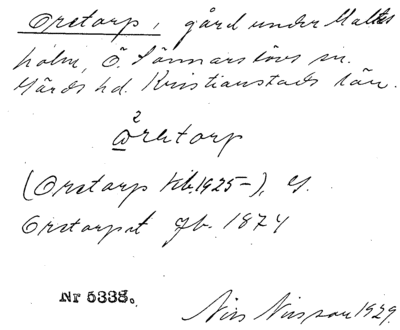 Oretorp, gård under Maltes
holm, Ö. Sönnarslövs sn.
Gärds hd. Kristianstads län.
2
òretorp
(Oretorp kb. 1925-), G.
Oretorpet gb. 1874
Nr 5338.
Nils Nilsson 1929.